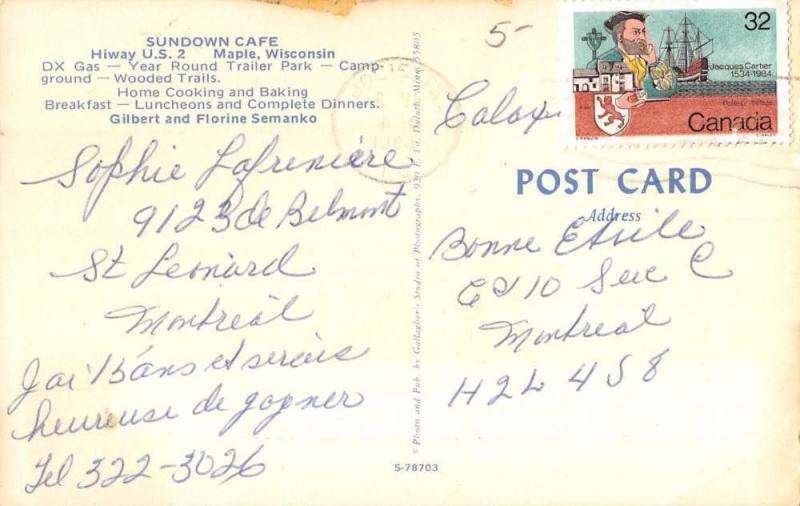 SUNDOWN CAFE
Hiway U.S. 2 Maple, Wisconsin
DX Gas — Year Round Trailer Park — Camp-
ground — Wooded Trails.
Home Cooking and Baking
Breakfast — Luncheons and Complete Dinners.
Gilbert and Florine Semanko
Sophie Lafrenière
9123 de Belmont
St Leonard
Montreal
J'ai 13 ans et serais
heureuse de gagner
Tel 322-3026
© Photo and Pub. by Gallagher's Studio of Photography, 920 E. 1st, Duluth, Minn. 55805
S-78703
5-
32
Jacques Cartier
1534-1984
Canada
POST CARD
Address
Bonne Etoile
CP 10 Succ C
Montreal
H2L 4S8